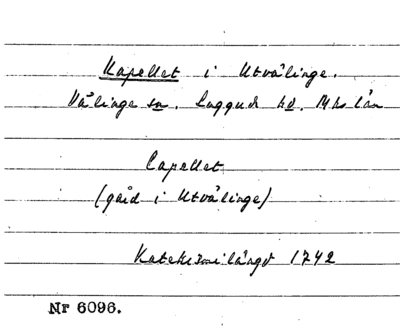 Kapellet i Utvälinge.
Välinge sn. Luggude hd. Mhs län
Capellet
(gård i Utvälinge)
Katekismilängd 1742
Nr 6096.